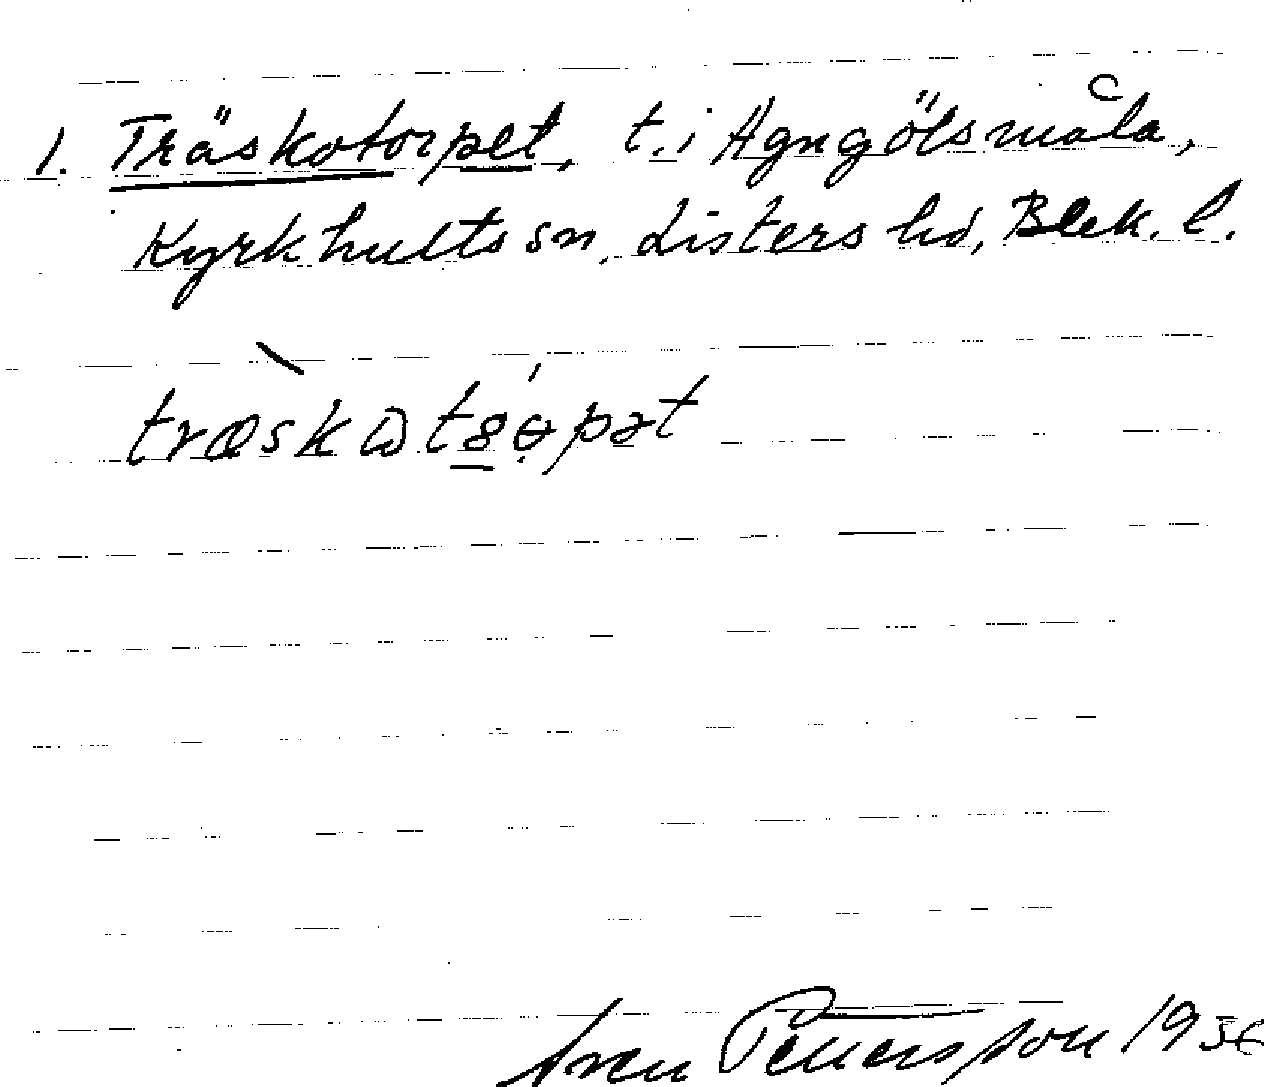 1. Träskotorpet, t. i Agngölsmåla,
Kyrkhults sn, Listers hd, Blek. l.
Sven Pettersson 1956